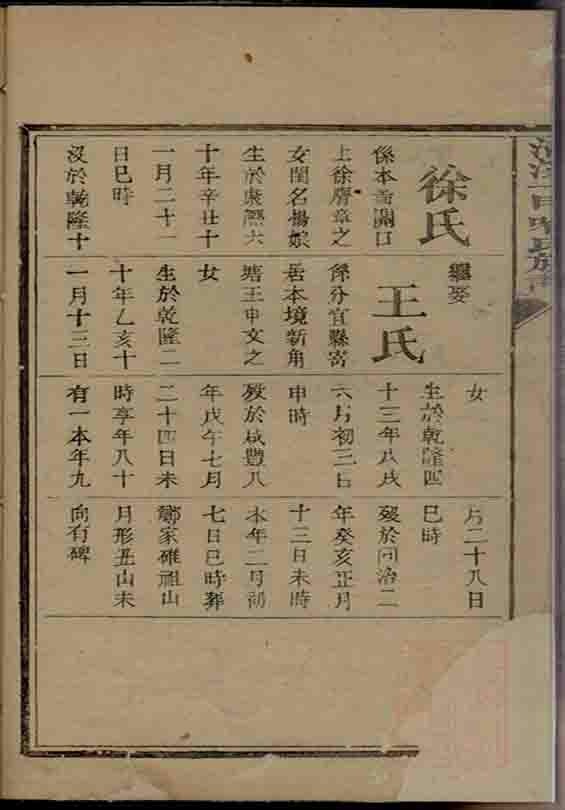 徐氏
係本邑關口
上徐膺章之
女閨名揚娘
生於康熙六
十年辛丑十
一月二十一
日巳時
沒於乾隆十
繼娶
王氏
係分宜縣寄
居本境新角
塘王申文之
女
生於乾隆二
十年乙亥十
一月十三日
女
生於乾隆四
十三年戊戌
六月初三日
申時
歿於咸豐八
年戊午七月
二十四日未
時享年八十
有一本年九
月二十八日
巳時
歿於同治二
年癸亥正月
十三日未時
本年二月初
七日巳時葬
鄭家碓祖山
月形丑山未
向有碑